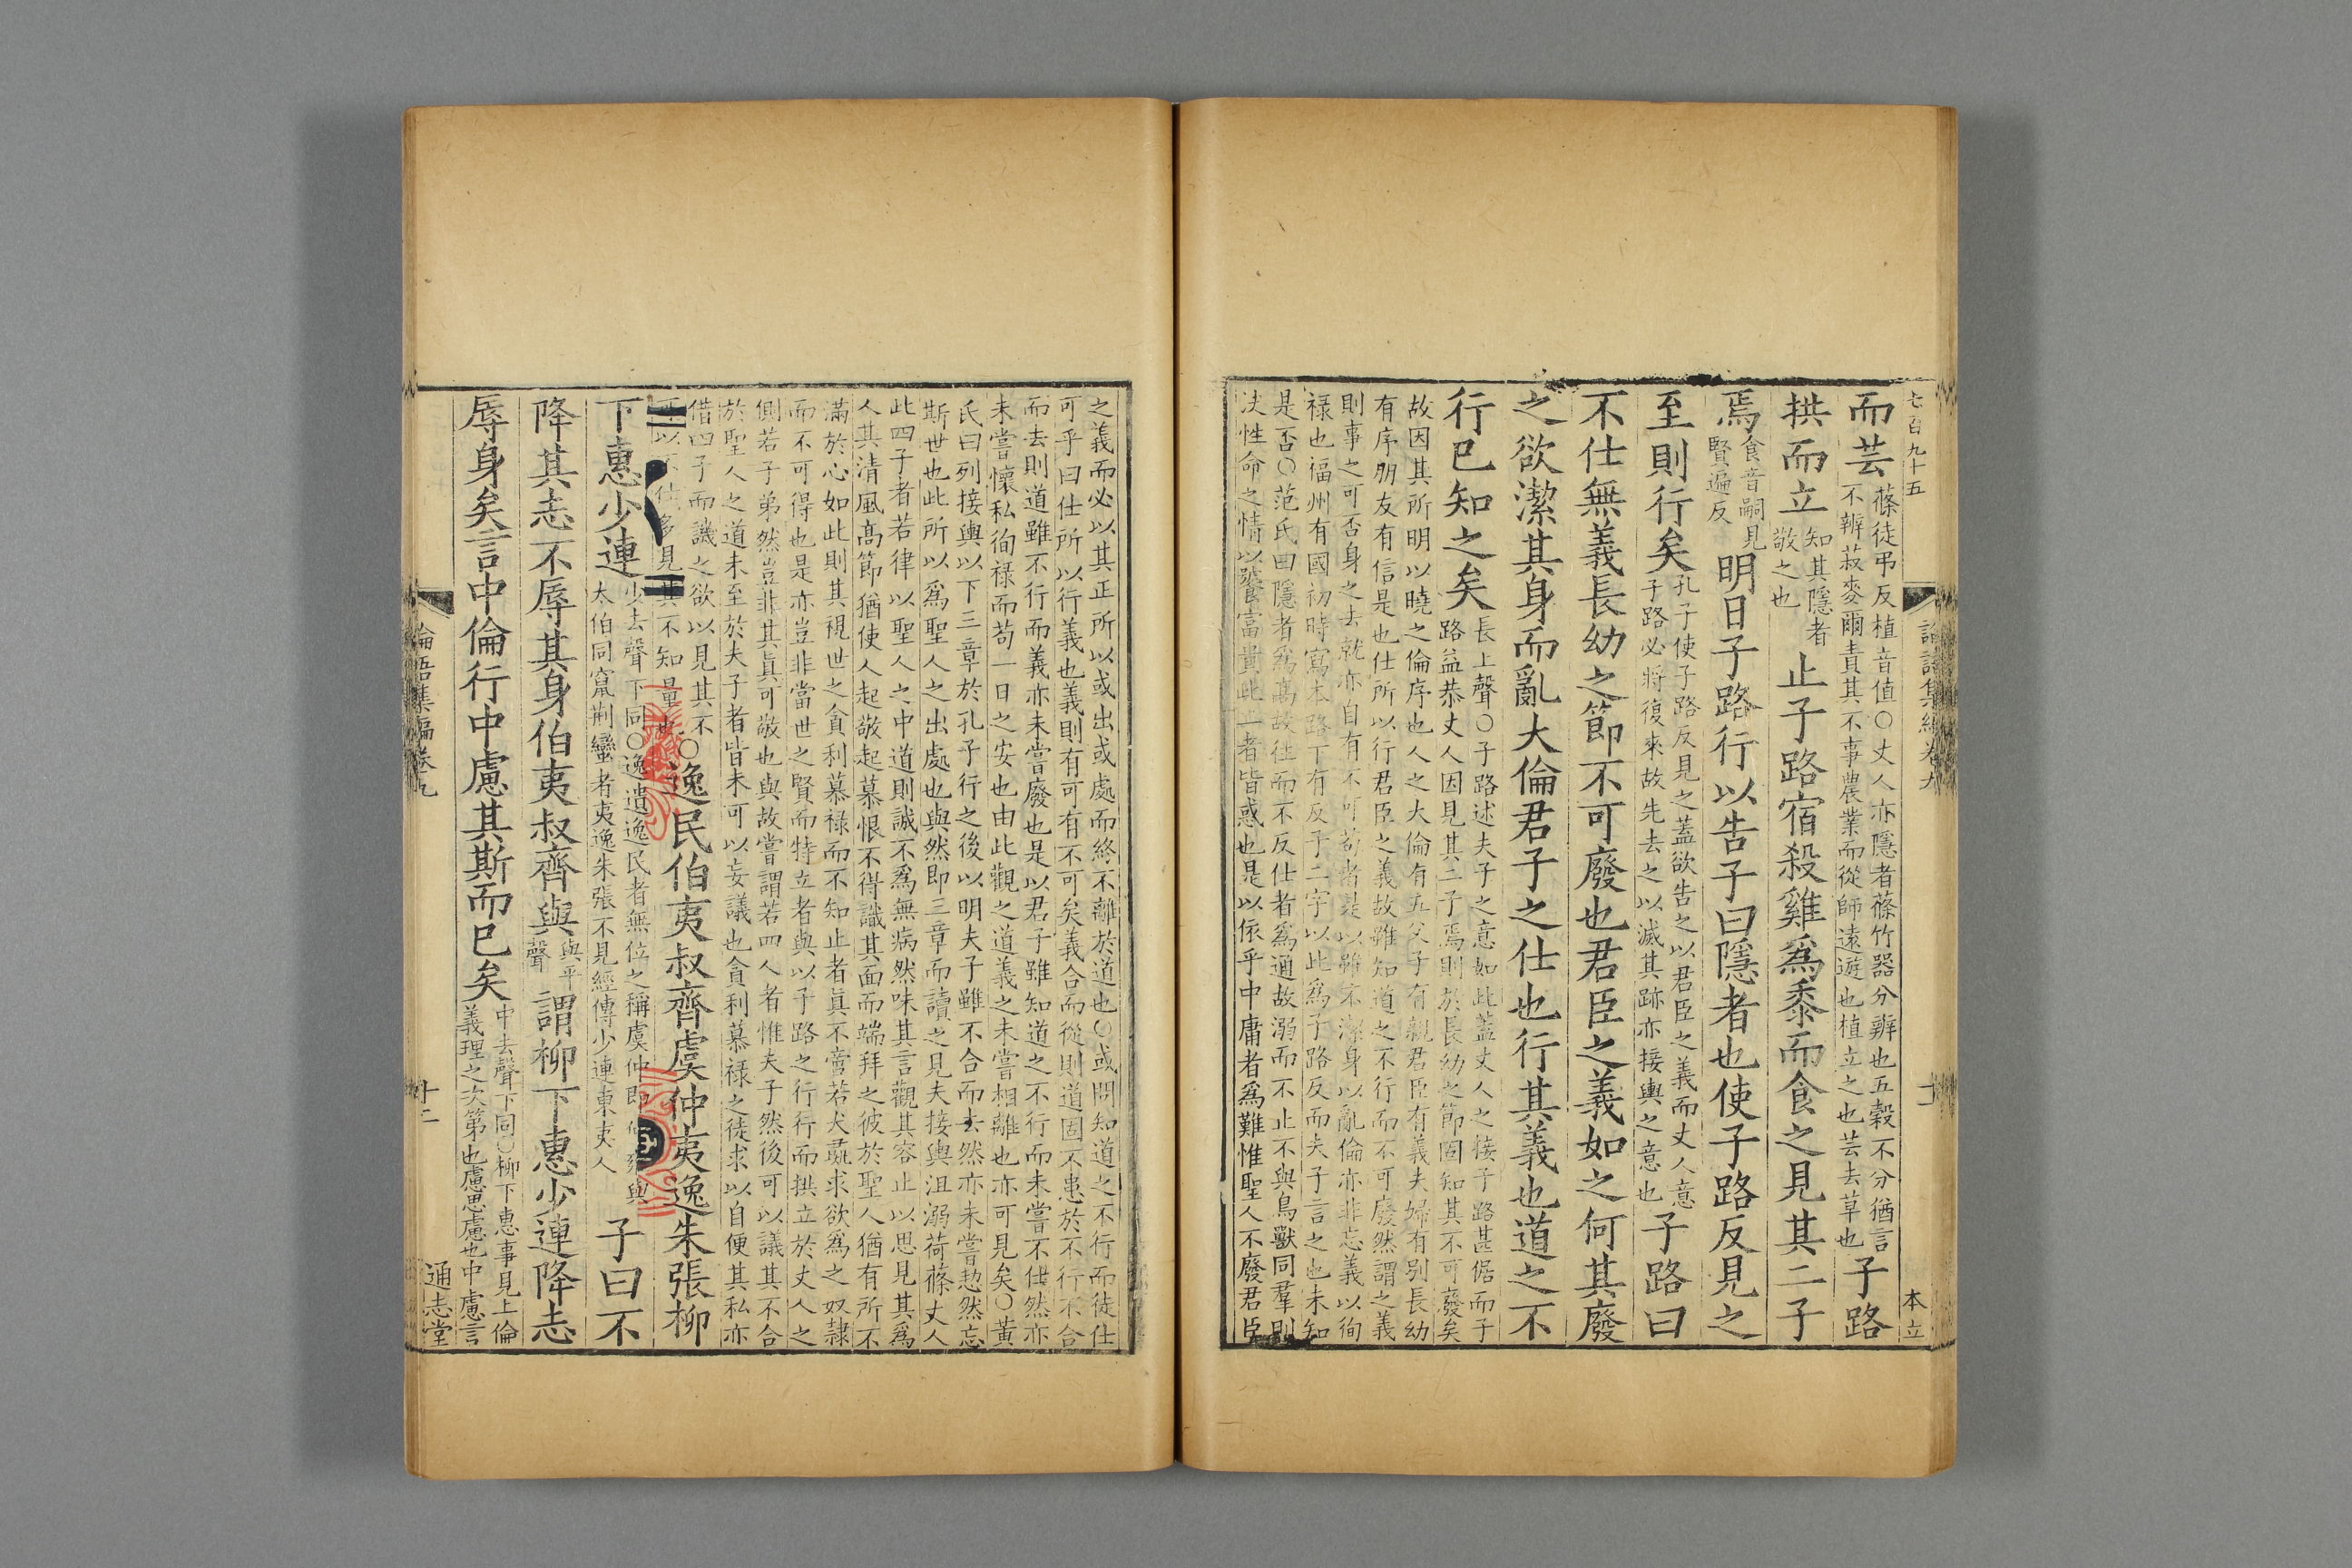 七百九十五
而芸蓧徒弔反植音值〇丈人亦隱者蓧竹器分辨也五穀不分猶言
不辨菽麥爾責其不事農業而從師遠遊也植立之也芸去草也子路
拱而立知其隱者
敬之也止子路宿殺雞為黍而食之見其二子
焉食音嗣見
賢遍反明日子路行以告子曰隱者也使子路反見之
至則行矣孔子使子路反見之蓋欲告之以君臣之義而丈人意
子路必將復來故先去之以滅其跡亦接輿之意也子路曰
不仕無義長幼之節不可廢也君臣之義如之何其廢
之欲潔其身而亂大倫君子之仕也行其義也道之不
行已知之矣長上聲〇子路述夫子之意如此蓋丈人之接子路甚倨而子
路益恭丈人因見其二子焉則於長幼之節固知其不可廢矣
故因其所明以曉之倫序也人之大倫有五父子有親君臣有義夫婦有別長幼
有序朋友有信是也仕所以行君臣之義故雖知道之不行而不可廢然謂之義
則事之可否身之去就亦自有不可苟者是以雖不潔身以亂倫亦非忘義以徇
祿也福州有國初時寫本路下有反子二字以此為子路反而夫子言之也未知
是否〇范氏曰隱者為高故往而不反仕者為通故溺而不止不與鳥獸同羣則
決性命之情以饕富貴此二者皆惑也是以依乎中庸者為難惟聖人不廢君臣
論語集編卷九
十一
本立
之義而必以其正所以或出或處而終不離於道也〇或問知道之不行而徒仕
可乎曰仕所以行義也義則有可有不可矣義合而從則道固不患於不行不合
而去則道雖不行而義亦未嘗廢也是以君子雖知道之不行而未嘗不仕然亦
未嘗懷私徇祿而苟一日之安也由此觀之道義之未嘗相離也亦可見矣〇黃
氏曰列接輿以下三章於孔子行之後以明夫子雖不合而去然亦未嘗恝然忘
斯世也此所以為聖人之出處也與然即三章而讀之見夫接輿沮溺荷蓧丈人
此四子者若律以聖人之中道則誠不為無病然味其言觀其容止以思見其為
人其清風高節猶使人起敬起慕恨不得識其面而端拜之彼於聖人猶有所不
滿於心如此則其視世之貪利慕祿而不知止者真不啻若犬彘求欲為之奴隸
而不可得也是亦豈非當世之賢而特立者與以子路之行行而拱立於丈人之
側若子弟然豈非其真可敬也與故嘗謂若四人者惟夫子然後可以議其不合
於聖人之道未至於夫子者皆未可以妄議也貪利慕祿之徒求以自便其私亦
借四子而譏之欲以見其不
可以不仕多見其不知量也〇逸民伯夷叔齊虞仲夷逸朱張柳
下惠少連少去聲下同〇逸遺逸民者無位之稱虞仲即仲雍與
太伯同竄荊蠻者夷逸朱張不見經傳少連東夷人子曰不
降其志不辱其身伯夷叔齊與與平
聲謂柳下惠少連降志
辱身矣言中倫行中慮其斯而已矣中去聲下同〇柳下惠事見上倫
義理之次第也慮思慮也中慮言
論語集編卷九
十二
通志堂